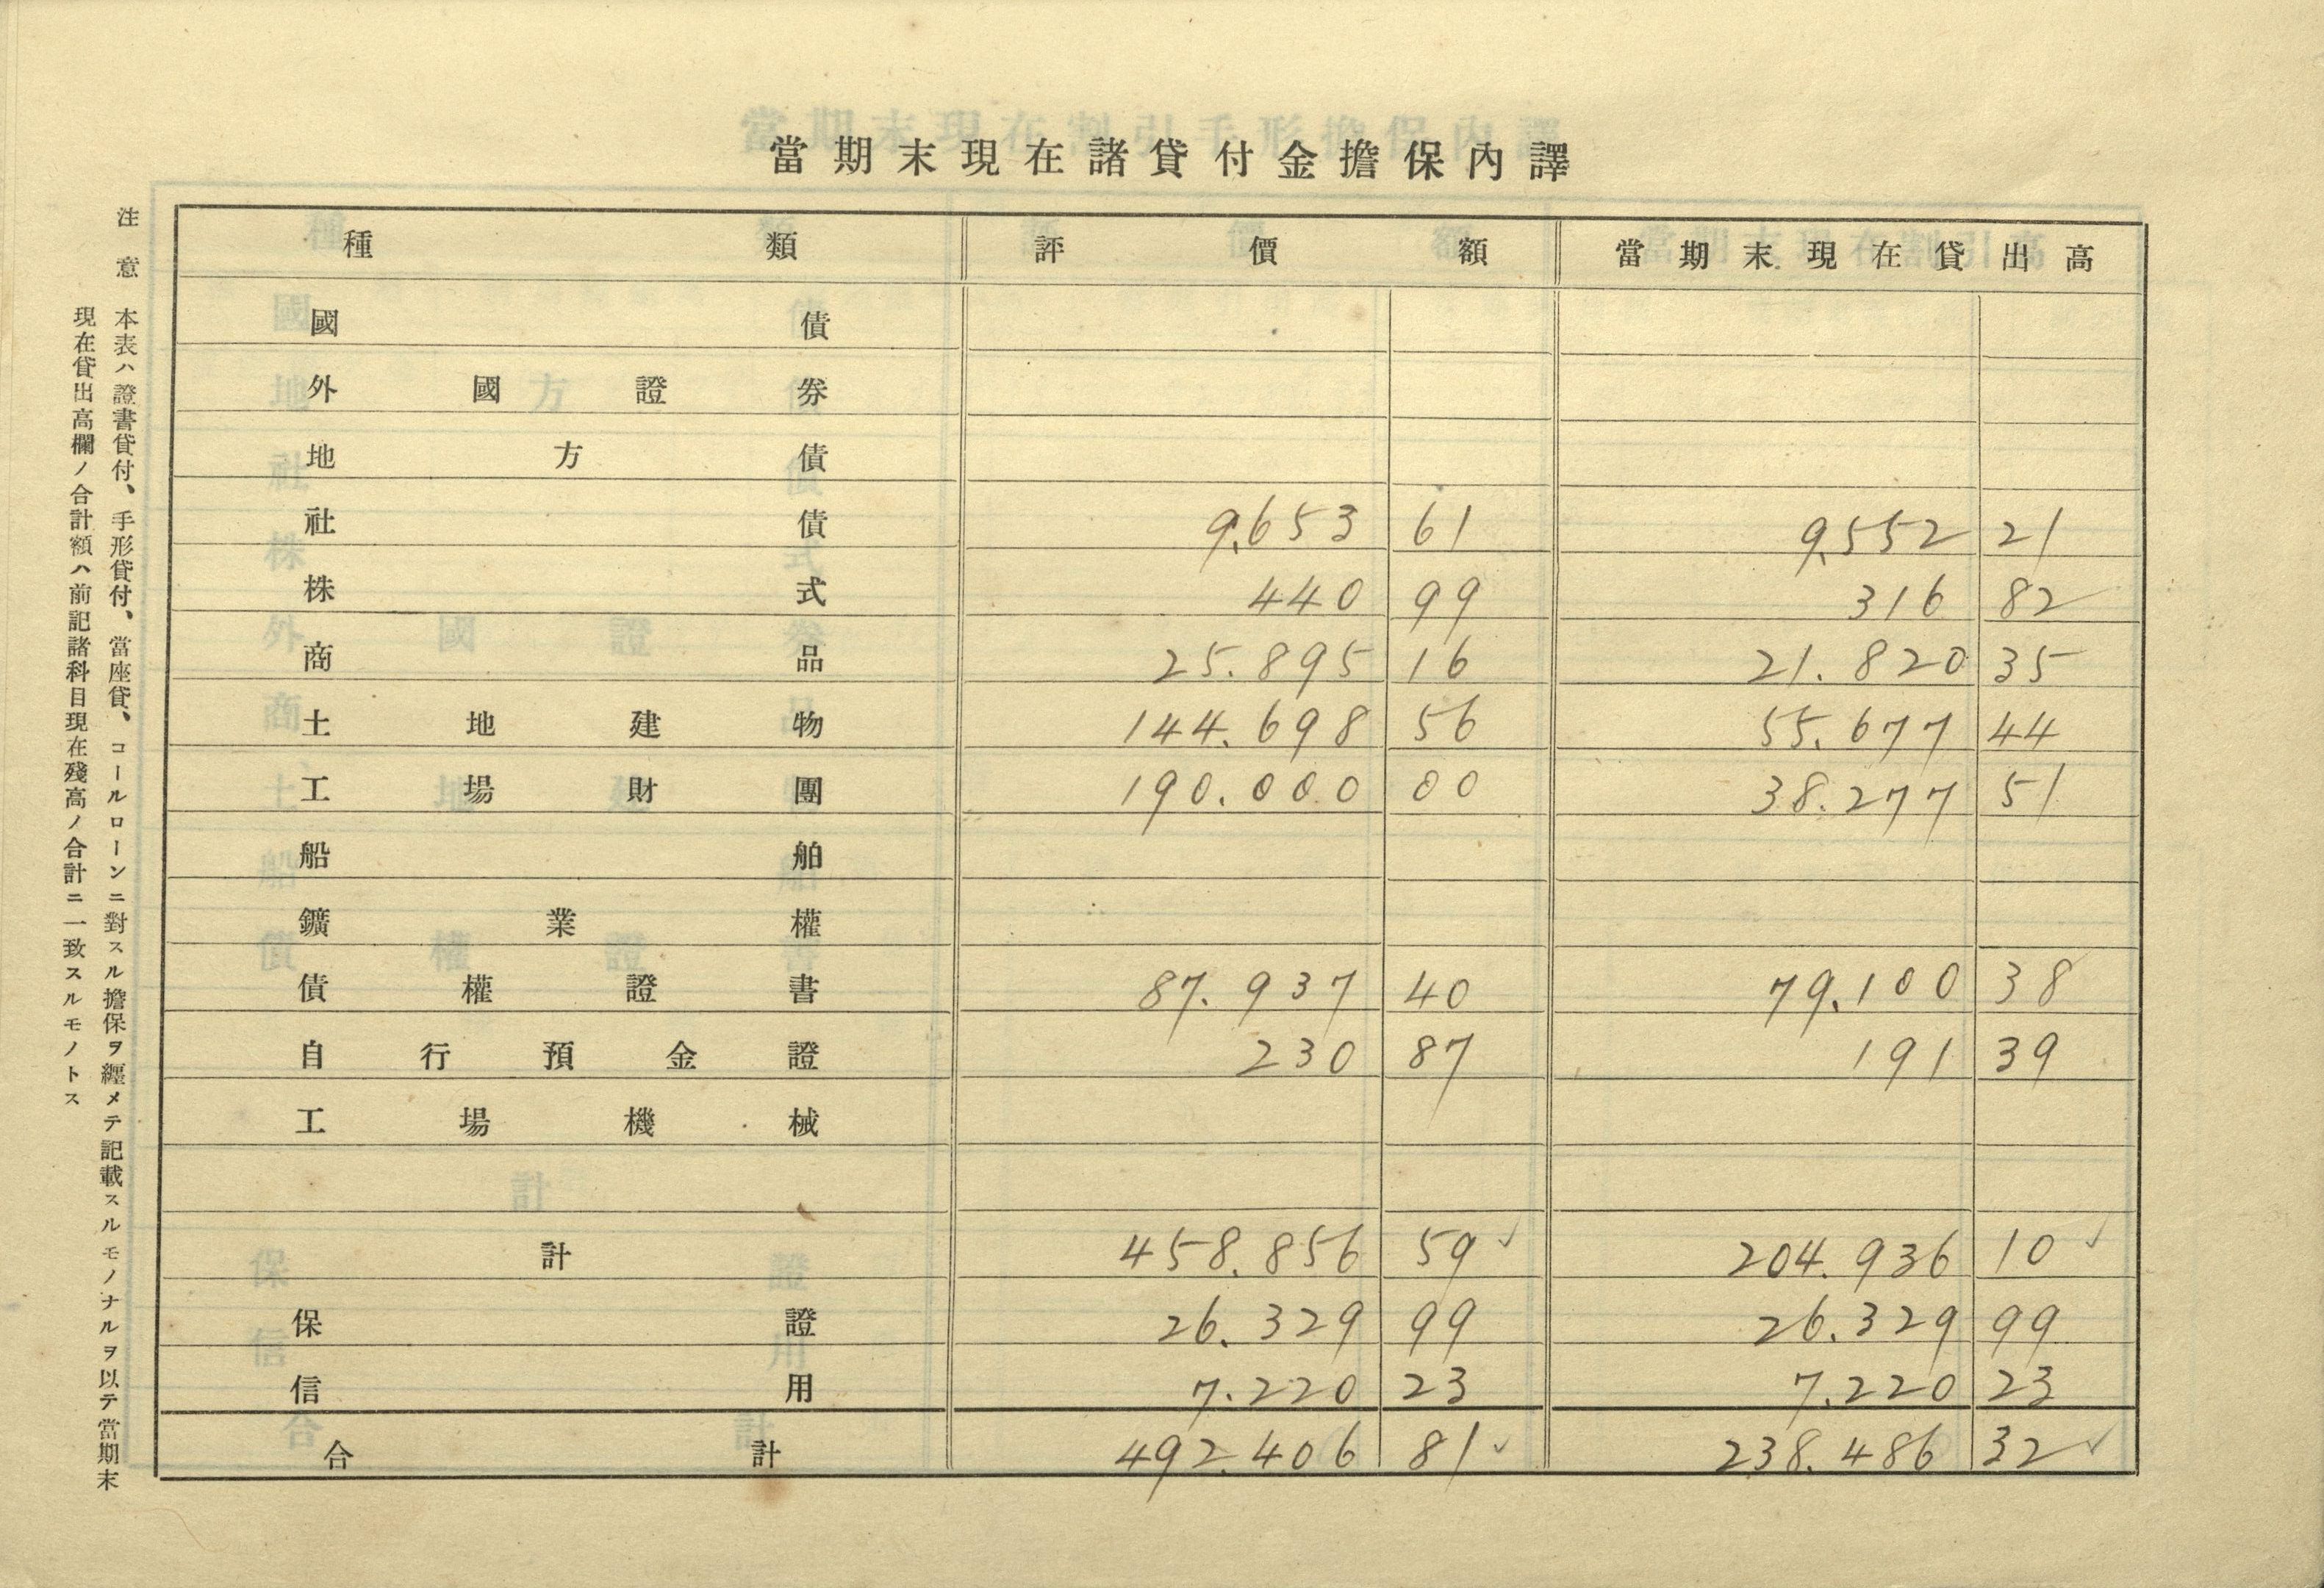 當期末現在諸貸付金擔保內譯
種類 評價額 當期末現在貸出高
國債
外國證券
地方債
社債 9.653 61 9.552 21
株式 440 99 316 82
商品 25.895 16 21.820 35
土地建物 144.698 56 55.677 44
工場財團 190.000 00 38.277 51
船舶
鑛業權
債權證書 87.937 40 79.100 38
自行預金證 230 87 191 39
工場機械
計 458.856 59 ✓ 204.936 10 ✓
保證 26.329 99 26.329 99
信用 7.220 23 7.220 23
合計 492.406 81 ✓ 238.486 32 ✓
注意 本表ハ證書貸付、手形貸付、當座貸、コールローンニ對スル擔保ヲ纒メテ記載スルモノナルヲ以テ當期末
現在貸出高欄ノ合計額ハ前記諸科目現在殘高ノ合計ニ一致スルモノトス